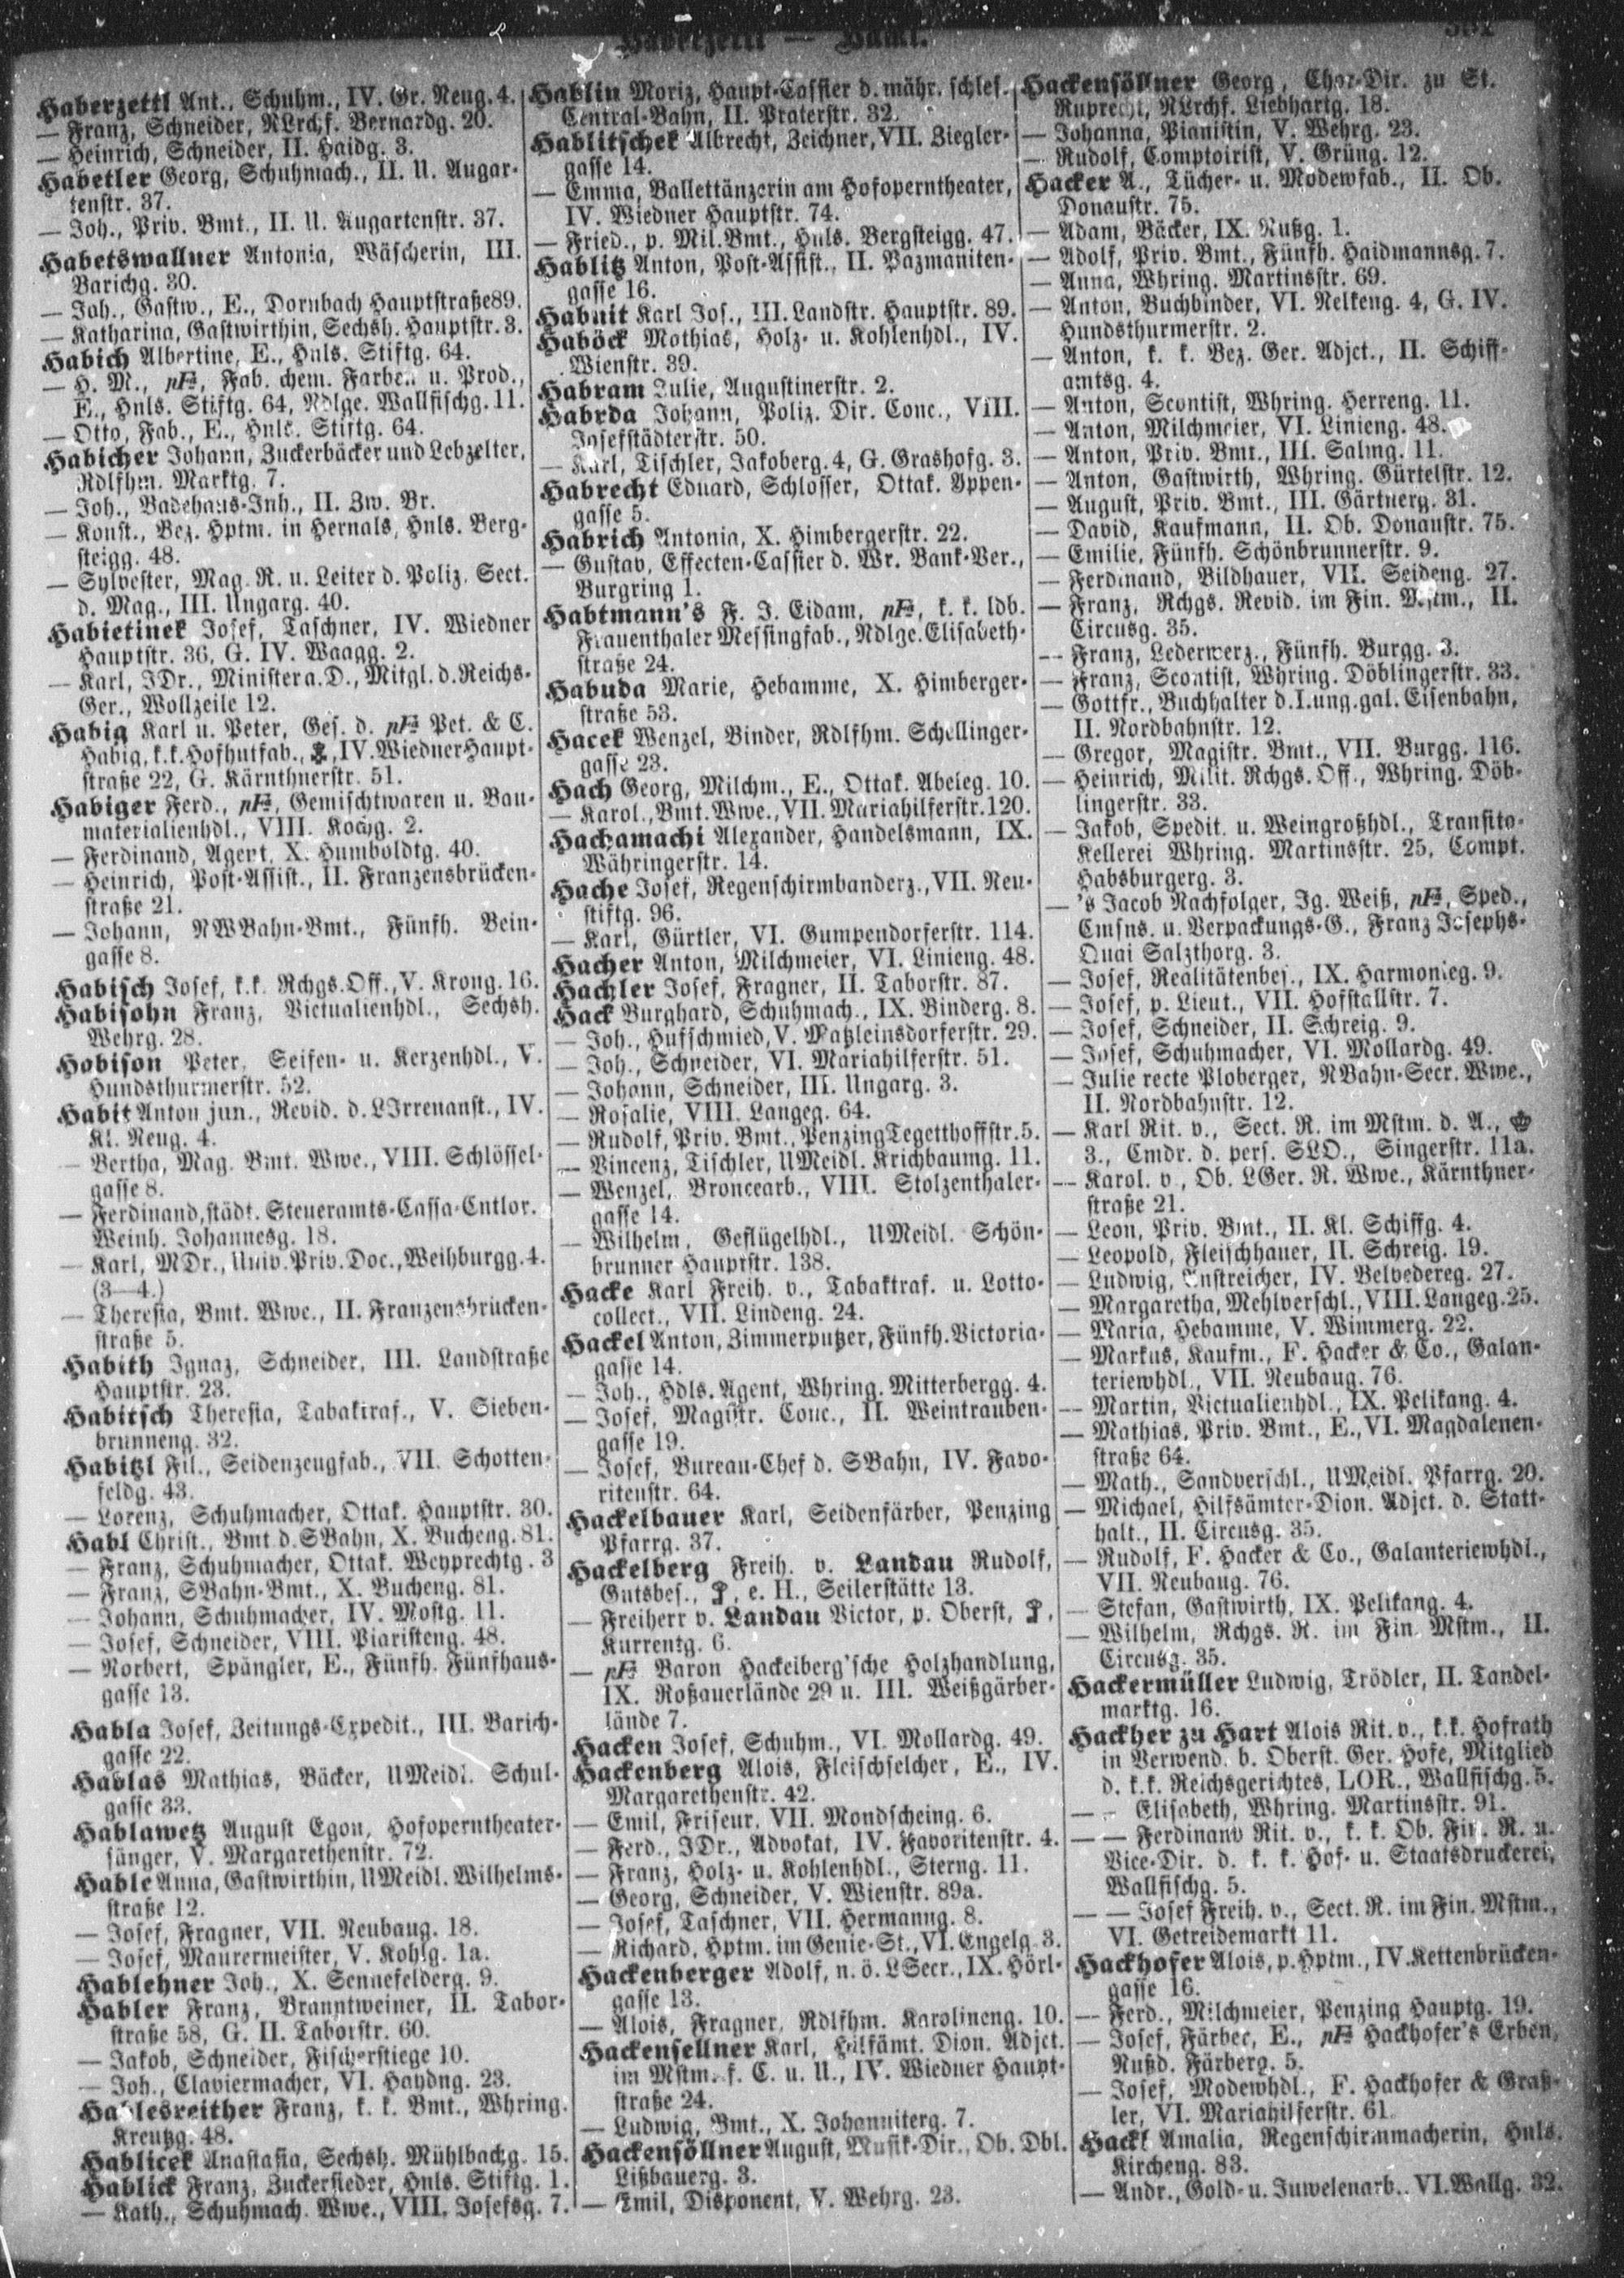 Haberzettl — Hackl.
Haberzettl Ant., Schuhm., IV. Gr. Neug. 4.
— Franz, Schneider, NLrchf. Bernardg. 20.
— Heinrich, Schneider, II. Haidg. 3.
Habetler Georg, Schuhmach., II. U. Augar-
tenstr. 37.
— Joh., Priv. Bmt., II. U. Augartenstr. 37.
Habetswallner Antonia, Wäscherin, III.
Barichg. 30.
— Joh., Gastw., E., Dornbach Hauptstraße 89.
— Katharina, Gastwirthin, Sechsh. Hauptstr. 3.
Habich Albertine, E., Hnls. Stiftg. 64.
— H. M., pF, Fab. chem. Farben u. Prod.,
E., Hnls. Stiftg. 64, Ndlge. Wallfischg. 11.
— Otto, Fab., E., Hnls. Stiftg. 64.
Habicher Johann, Zuckerbäcker und Lebzelter,
Rdlfhm. Marktg. 7.
— Joh., Badehaus-Inh., II. Zw. Br.
— Konst., Bez. Hptm. in Hernals, Hnls. Berg-
steigg. 48.
— Sylvester, Mag. R. u. Leiter d. Poliz. Sect.
d. Mag., III. Ungarg. 40.
Habietinek Josef, Taschner, IV. Wiedner
Hauptstr. 36, G. IV. Waagg. 2.
— Karl, JDr., Minister a. D., Mitgl. d. Reichs-
Ger., Wollzeile 12.
Habig Karl u. Peter, Ges. d. pF Pet. & C.
Habig, k.k. Hofhutfab., IV. Wiedner Haupt-
straße 22, G. Kärnthnerstr. 51.
Habiger Ferd., pF, Gemischtwaren u. Bau-
materialienhdl., VIII. Kochg. 2.
— Ferdinand, Agent, X. Humboldtg. 40.
— Heinrich, Post-Assist., II. Franzensbrücken-
straße 21.
— Johann, NWBahn-Bmt., Fünfh. Bein-
gasse 8.
Habisch Josef, k.k. Rchgs. Off., V. Krong. 16.
Habisohn Franz, Victualienhdl., Sechsh.
Wehrg. 28.
Habison Peter, Seifen- u. Kerzenhdl., V.
Hundsthurmerstr. 52.
Habit Anton jun., Revid. d. LIrrenanst., IV.
Kl. Neug. 4.
— Bertha, Mag. Bmt. Wwe., VIII. Schlössel-
gasse 8.
— Ferdinand, städt. Steueramts-Cassa-Cntlor.
Weinh. Johannesg. 18.
— Karl, MDr., Univ. Priv. Doc., Weihburgg. 4.
(3—4.)
— Theresia, Bmt. Wwe., II. Franzensbrücken-
straße 5.
Habith Ignaz, Schneider, III. Landstraße
Hauptstr. 23.
Habitsch Theresia, Tabaktraf., V. Sieben-
brunneng. 32.
Habitzl Fil., Seidenzeugfab., VII. Schotten-
feldg. 43.
— Lorenz, Schuhmacher, Ottak. Hauptstr. 30.
Habl Christ., Bmt. d. SBahn, X. Bucheng. 81.
— Franz, Schuhmacher, Ottak. Weyprechtg. 3
— Franz, SBahn-Bmt., X. Bucheng. 81.
— Johann, Schuhmacher, IV. Mostg. 11.
— Josef, Schneider, VIII. Piaristeng. 48.
— Norbert, Spängler, E., Fünfh. Fünfhaus-
gasse 13.
Habla Josef, Zeitungs-Expedit., III. Barich-
gasse 22.
Hablas Mathias, Bäcker, UMeidl. Schul-
gasse 33.
Hablawetz August Egon, Hofoperntheater-
sänger, V. Margarethenstr. 72.
Hable Anna, Gastwirthin, UMeidl. Wilhelms-
straße 12.
— Josef, Fragner, VII. Neubaug. 18.
— Josef, Maurermeister, V. Kohlg. 1a.
Hablehner Joh., X. Sennefelderg. 9.
Habler Franz, Branntweiner, II. Tabor-
straße 58, G. II. Taborstr. 60.
— Jakob, Schneider, Fischerstiege 10.
— Joh., Claviermacher, VI. Haydng. 23.
Hablesreither Franz, k. k. Bmt., Whring.
Kreutzg. 48.
Hablicek Anastasia, Sechsh. Mühlbachg. 15.
Hablick Franz, Zuckersieder, Hnls. Stiftg. 1.
— Kath., Schuhmach. Wwe., VIII. Josefsg. 7.
Hablin Moriz, Haupt-Cassier d. mähr. schles.
Central-Bahn, II. Praterstr. 32.
Hablitschek Albrecht, Zeichner, VII. Ziegler-
gasse 14.
— Emma, Ballettänzerin am Hofoperntheater,
IV. Wiedner Hauptstr. 74.
— Fried., p. Mil. Bmt., Hnls. Bergsteigg. 47.
Hablitz Anton, Post-Assist., II. Pazmaniten-
gasse 16.
Habnit Karl Jos., III. Landstr. Hauptstr. 89.
Haböck Mathias, Holz- u. Kohlenhdl., IV.
Wienstr. 39.
Habram Julie, Augustinerstr. 2.
Habrda Johann, Poliz. Dir. Conc., VIII.
Josefstädterstr. 50.
— Karl, Tischler, Jakoberg. 4, G. Grashofg. 3.
Habrecht Eduard, Schlosser, Ottak. Yppen-
gasse 5.
Habrich Antonia, X. Himbergerstr. 22.
— Gustav, Effecten-Cassier d. Wr. Bank-Ver.,
Burgring 1.
Habtmann's F. J. Eidam, pF, k. k. ldb.
Frauenthaler Messingfab., Ndlge. Elisabeth-
straße 24.
Habuda Marie, Hebamme, X. Himberger-
straße 53.
Hacek Wenzel, Binder, Rdlfhm. Schellinger-
gasse 23.
Hach Georg, Milchm., E., Ottak. Abeleg. 10.
— Karol., Bmt. Wwe., VII. Mariahilferstr. 120.
Hachamachi Alexander, Handelsmann, IX.
Währingerstr. 14.
Hache Josef, Regenschirmbanderz., VII. Neu-
stiftg. 96.
— Karl, Gürtler, VI. Gumpendorferstr. 114.
Hacher Anton, Milchmeier, VI. Linieng. 48.
Hachler Josef, Fragner, II. Taborstr. 87.
Hack Burghard, Schuhmach., IX. Binderg. 8.
— Joh., Hufschmied, V. Matzleinsdorferstr. 29.
— Joh., Schneider, VI. Mariahilferstr. 51.
— Johann, Schneider, III. Ungarg. 3.
— Rosalie, VIII. Langeg. 64.
— Rudolf, Priv. Bmt., Penzing Tegetthoffstr. 5.
— Vincenz, Tischler, UMeidl. Krichbaumg. 11.
— Wenzel, Broncearb., VIII. Stolzenthaler-
gasse 14.
— Wilhelm, Geflügelhdl., UMeidl. Schön-
brunner Hauptstr. 138.
Hacke Karl Freih. v., Tabaktraf. u. Lotto-
collect., VII. Lindeng. 24.
Hackel Anton, Zimmerputzer, Fünfh. Victoria-
gasse 14.
— Joh., Hdls. Agent, Whring. Mitterbergg. 4.
— Josef, Magistr. Conc., II. Weintrauben-
gasse 19.
— Josef, Bureau-Chef d. SBahn, IV. Favo-
ritenstr. 64.
Hackelbauer Karl, Seidenfärber, Penzing
Pfarrg. 37.
Hackelberg Freih. v. Landau Rudolf,
Gutsbes., e. H., Seilerstätte 13.
— Freiherr v. Landau Victor, p. Oberst,
Kurrentg. 6.
— pF Baron Hackelberg'sche Holzhandlung,
IX. Roßauerlände 29 u. III. Weißgärber-
lände 7.
Hacken Josef, Schuhm., VI. Mollardg. 49.
Hackenberg Alois, Fleischselcher, E., IV.
Margarethenstr. 42.
— Emil, Friseur, VII. Mondscheing. 6.
— Ferd., JDr., Advokat, IV. Favoritenstr. 4.
— Franz, Holz- u. Kohlenhdl., Sterng. 11.
— Georg, Schneider, V. Wienstr. 89a.
— Josef, Taschner, VII. Hermanng. 8.
— Richard, Hptm. im Genie-St., VI. Engelg. 3.
Hackenberger Adolf, n. ö. LSecr., IX. Hörl-
gasse 13.
— Alois, Fragner, Rdlfhm. Karolineng. 10.
Hackensellner Karl, Hilfsämt. Dion. Adjct.
im Mstm. f. C. u. U., IV. Wiedner Haupt-
straße 24.
— Ludwig, Bmt., X. Johanniterg. 7.
Hackensöllner August, Musik-Dir., Ob. Dbl.
Lißbauerg. 3.
— Emil, Disponent, V. Wehrg. 23.
Hackensöllner Georg, Chor-Dir. zu St.
Ruprecht, NLrchf. Liebhartg. 18.
— Johanna, Pianistin, V. Wehrg. 23.
— Rudolf, Comptoirist, V. Grüng. 12.
Hacker A., Tücher- u. Modewfab., II. Ob.
Donaustr. 75.
— Adam, Bäcker, IX. Nußg. 1.
— Adolf, Priv. Bmt., Fünfh. Haidmannsg. 7.
— Anna, Whring. Martinsstr. 69.
— Anton, Buchbinder, VI. Nelkeng. 4, G. IV.
Hundsthurmerstr. 2.
— Anton, k. k. Bez. Ger. Adjct., II. Schiff-
amtsg. 4.
— Anton, Scontist, Whring. Herreng. 11.
— Anton, Milchmeier, VI. Linieng. 48.
— Anton, Priv. Bmt., III. Salmg. 11.
— Anton, Gastwirth, Whring. Gürtelstr. 12.
— August, Priv. Bmt., III. Gärtnerg. 31.
— David, Kaufmann, II. Ob. Donaustr. 75.
— Emilie, Fünfh. Schönbrunnerstr. 9.
— Ferdinand, Bildhauer, VII. Seideng. 27.
— Franz, Rchgs. Revid. im Fin. Mstm., II.
Circusg. 35.
— Franz, Lederwerz., Fünfh. Burgg. 3.
— Franz, Scontist, Whring. Döblingerstr. 33.
— Gottfr., Buchhalter d. I. ung. gal. Eisenbahn,
II. Nordbahnstr. 12.
— Gregor, Magistr. Bmt., VII. Burgg. 116.
— Heinrich, Milit. Rchgs. Off., Whring. Döb-
lingerstr. 33.
— Jakob, Spedit. u. Weingroßhdl., Transito-
Kellerei Whring. Martinsstr. 25, Compt.
Habsburgerg. 3.
— 's Jacob Nachfolger, Ig. Weiß, pF, Sped.,
Cmsns. u. Verpackungs-G., Franz Josephs-
Quai Salzthorg. 3.
— Josef, Realitätenbes., IX. Harmonieg. 9.
— Josef, p. Lieut., VII. Hofstallstr. 7.
— Josef, Schneider, II. Schreig. 9.
— Josef, Schuhmacher, VI. Mollardg. 49.
— Julie recte Ploberger, NBahn-Secr. Wwe.,
II. Nordbahnstr. 12.
— Karl Rit. v., Sect. R. im Mstm. d. A.,
3., Cmdr. d. pers. SLO., Singerstr. 11a.
— Karol. v., Ob. LGer. R. Wwe., Kärnthner-
straße 21.
— Leon, Priv. Bmt., II. Kl. Schiffg. 4.
— Leopold, Fleischhauer, II. Schreig. 19.
— Ludwig, Anstreicher, IV. Belvedereg. 27.
— Margaretha, Mehlverschl., VIII. Langeg. 25.
— Maria, Hebamme, V. Wimmerg. 22.
— Markus, Kaufm., F. Hacker & Co., Galan-
teriewhdl., VII. Neubaug. 76.
— Martin, Victualienhdl., IX. Pelikang. 4.
— Mathias, Priv. Bmt., E., VI. Magdalenen-
straße 64.
— Math., Sandverschl., UMeidl. Pfarrg. 20.
— Michael, Hilfsämter-Dion. Adjct. d. Statt-
halt., II. Circusg. 35.
— Rudolf, F. Hacker & Co., Galanteriewhdl.,
VII. Neubaug. 76.
— Stefan, Gastwirth, IX. Pelikang. 4.
— Wilhelm, Rchgs. R. im Fin. Mstm., II.
Circusg. 35.
Hackermüller Ludwig, Trödler, II. Tandel-
marktg. 16.
Hackher zu Hart Alois Rit. v., k.k. Hofrath
in Verwend. b. Oberst. Ger. Hofe, Mitglied
d. k.k. Reichsgerichtes, LOR., Wallfischg. 5.
— — Elisabeth, Whring. Martinsstr. 91.
— — Ferdinand Rit. v., k. k. Ob. Fin. R. u.
Vice-Dir. d. k. k. Hof- u. Staatsdruckerei,
Wallfischg. 5.
— — Josef Freih. v., Sect. R. im Fin. Mstm.,
VI. Getreidemarkt 11.
Hackhofer Alois, p. Hptm., IV. Kettenbrücken-
gasse 16.
— Ferd., Milchmeier, Penzing Hauptg. 19.
— Josef, Färber, E., pF Hackhofer's Erben,
Nußd. Färberg. 5.
— Josef, Modewhdl., F. Hackhofer & Graß-
ler, VI. Mariahilferstr. 61.
Hackl Amalia, Regenschirmmacherin, Hnls.
Kircheng. 83.
— Andr., Gold- u. Juwelenarb., VI. Wallg. 32.